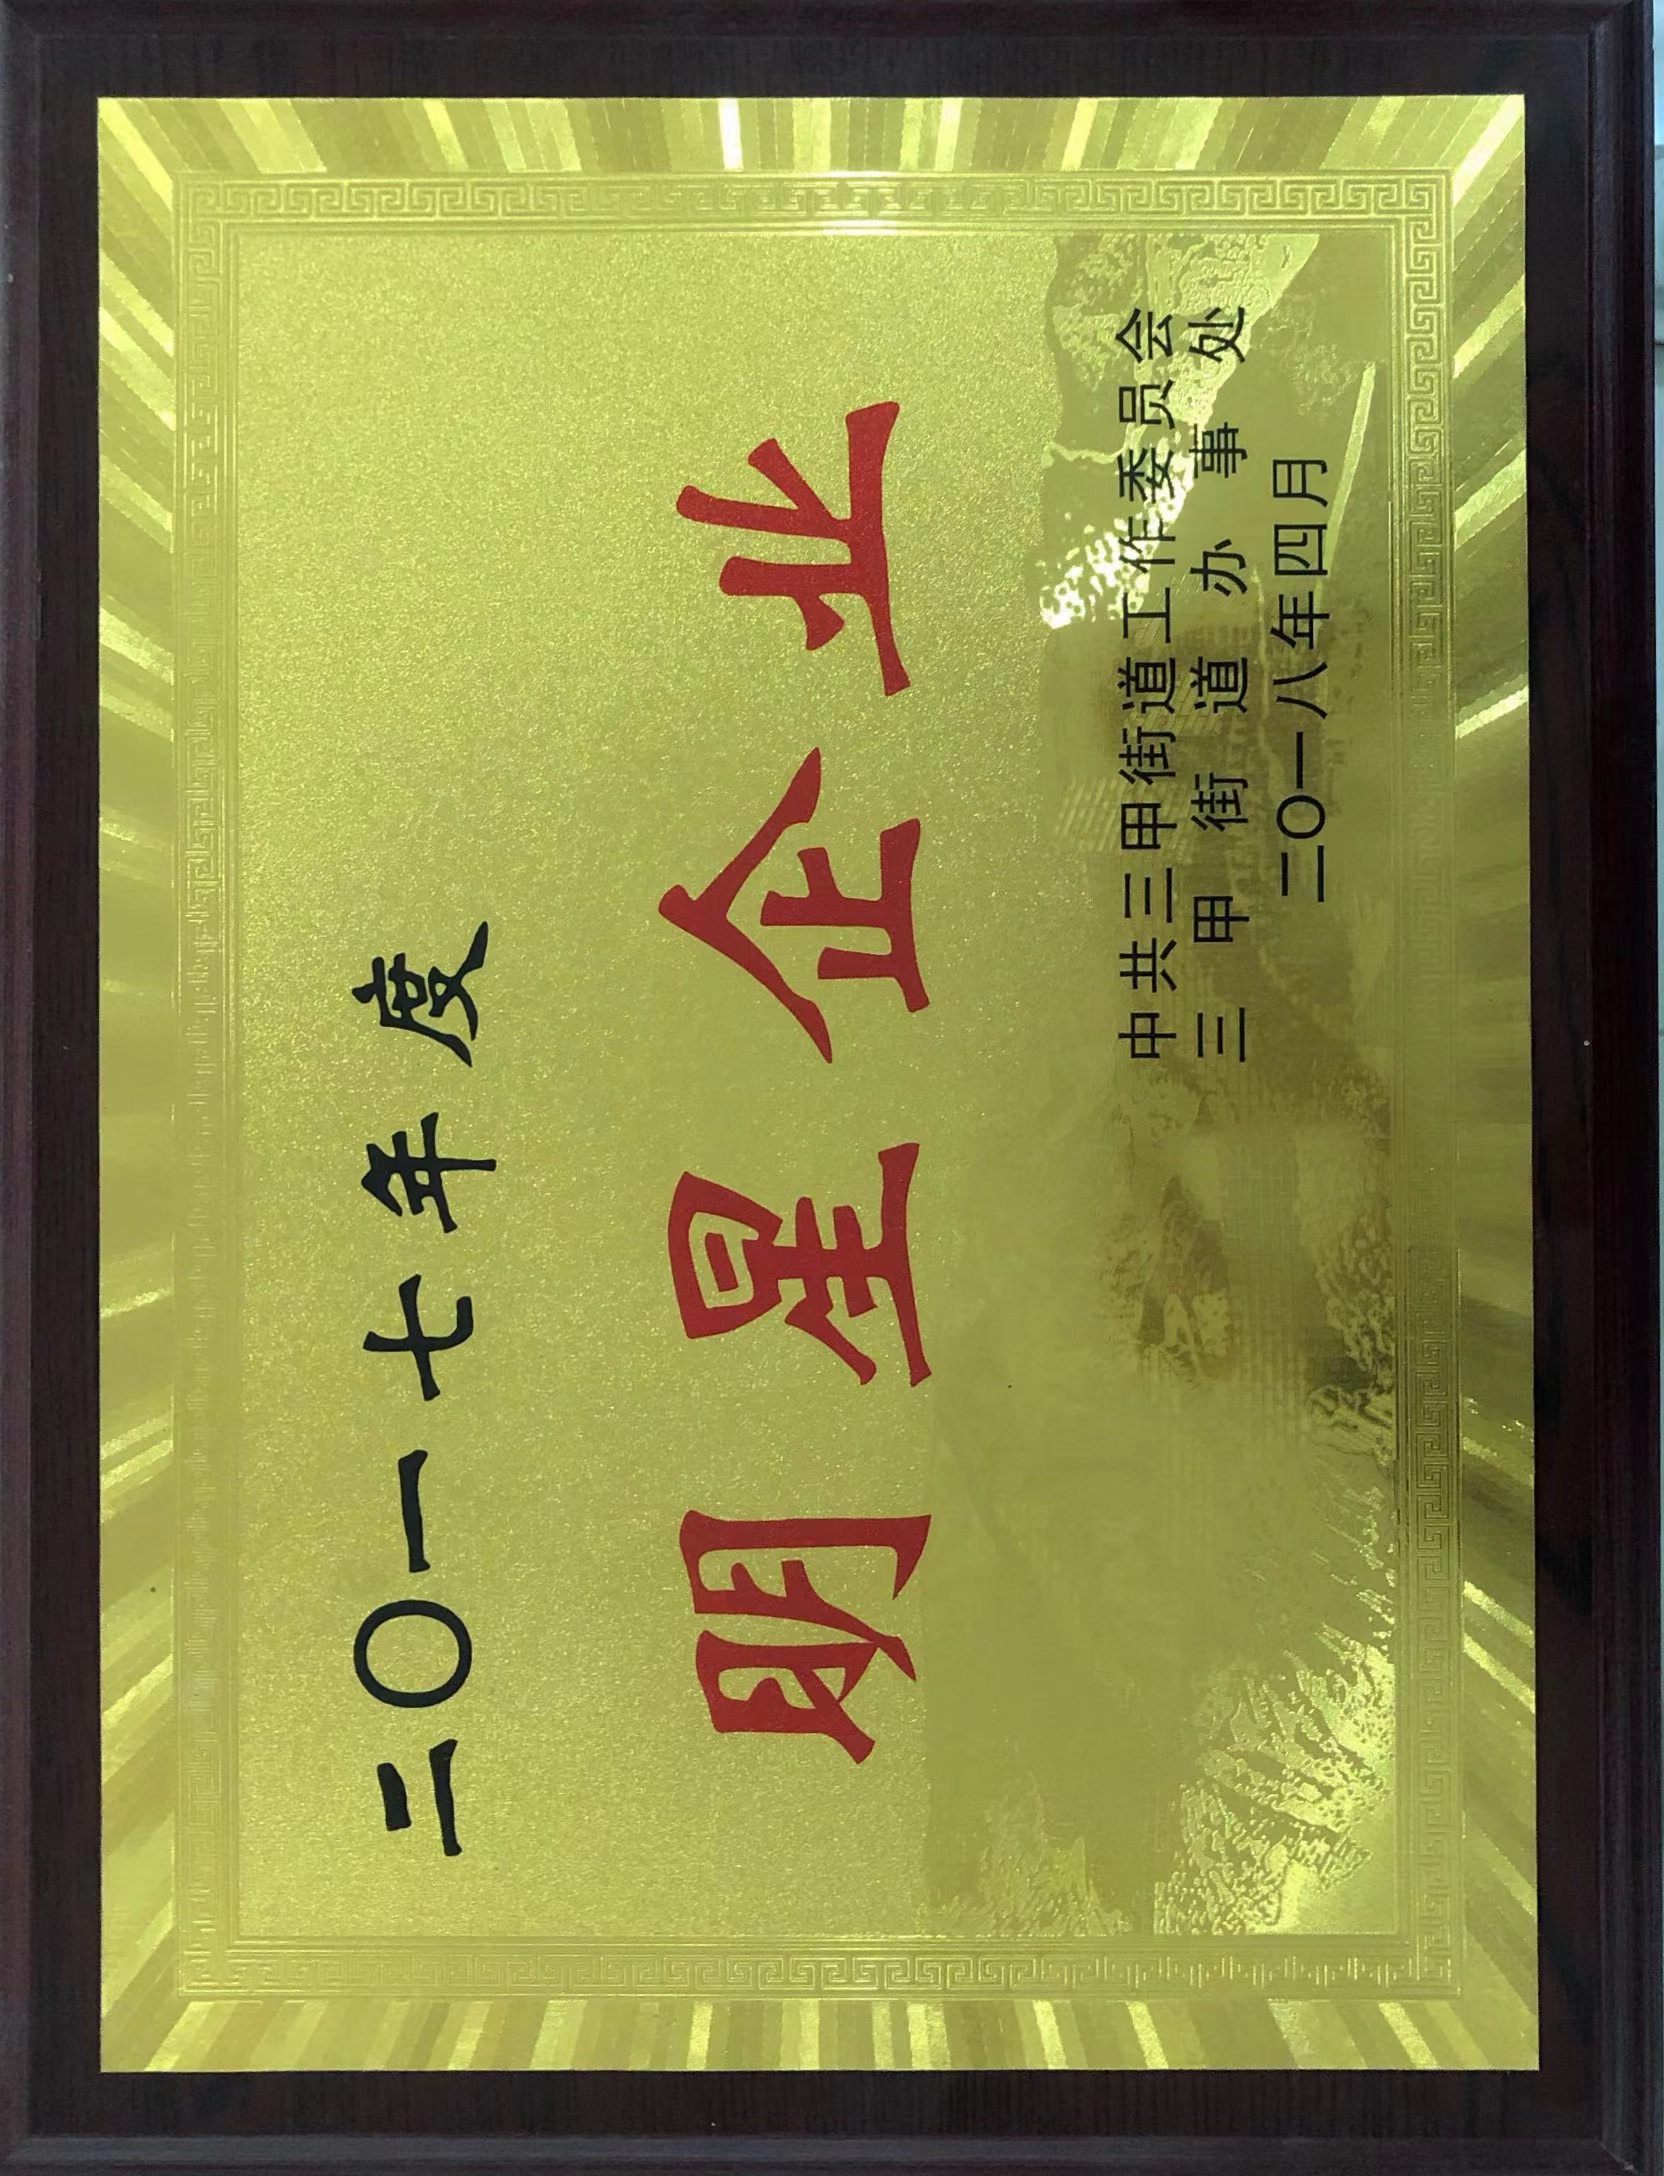 二〇一七年度
明星企业
中共三甲街道工作委员会
三甲街道办事处
二〇一八年四月